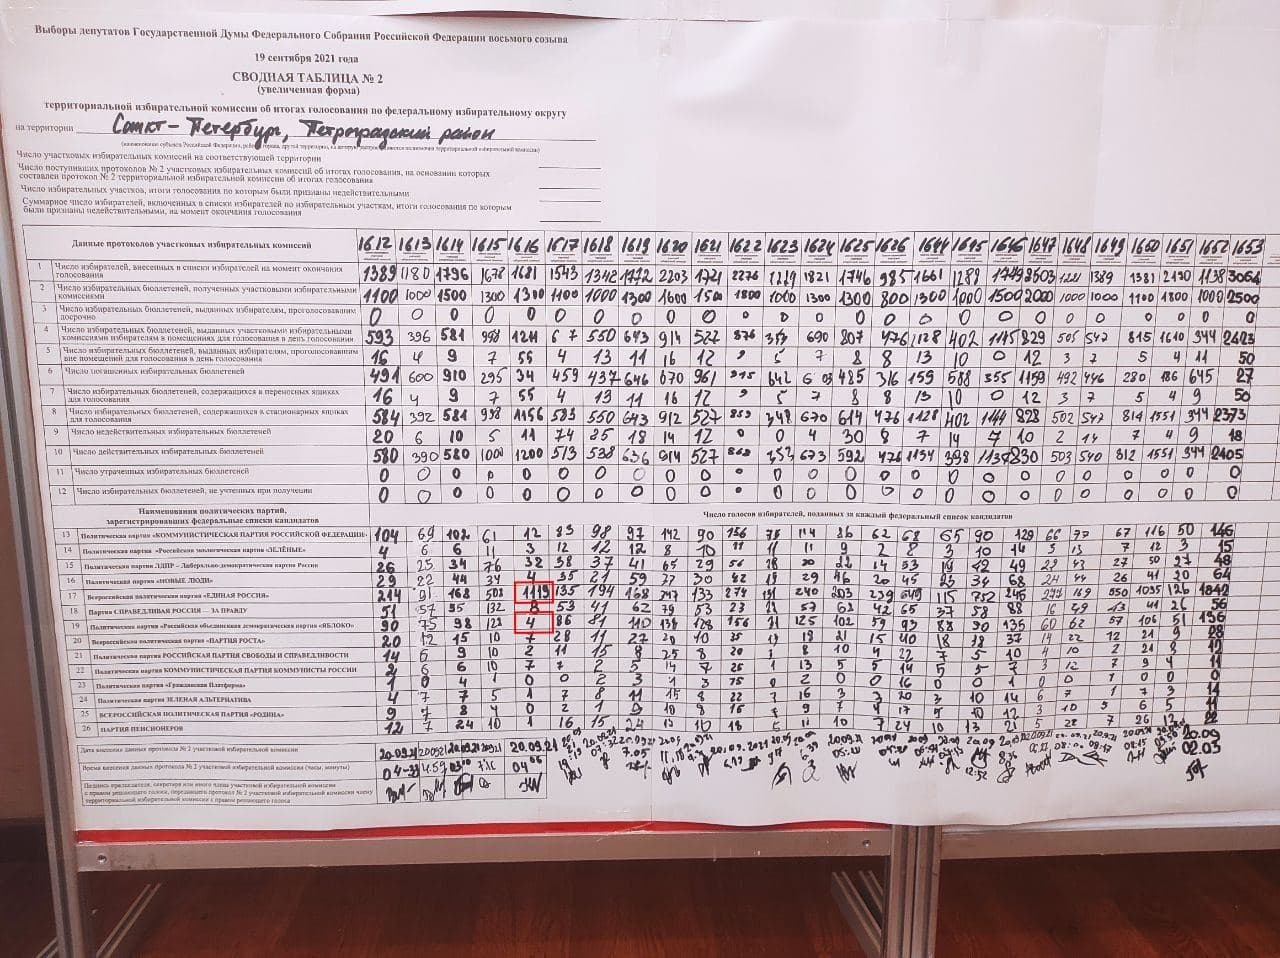 Выборы депутатов Государственной Думы Федерального Собрания Российской Федерации восьмого созыва
19 сентября 2021 года
СВОДНАЯ ТАБЛИЦА № 2
(увеличенная форма)
территориальной избирательной комиссии об итогах голосования по федеральному избирательному округу
на территории Санкт-Петербург, Петроградский район
Число участковых избирательных комиссий на соответствующей территории
Число поступивших протоколов № 2 участковых избирательных комиссий об итогах голосования, на основании которых
составлен протокол № 2 территориальной избирательной комиссии об итогах голосования
Число избирательных участков, итоги голосования по которым были признаны недействительными
Суммарное число избирателей, включенных в списки избирателей по избирательным участкам, итоги голосования по которым
были признаны недействительными, на момент окончания голосования
Данные протоколов участковых избирательных комиссий 1612 1613 1614 1615 1616 1617 1618 1619 1620 1621 1622 1623 1624 1625 1626 1644 1645 1646 1647 1648 1649 1650 1651 1652 1653
1 Число избирателей, внесенных в списки избирателей на момент окончания
голосования 1389 1180 1796 1678 1681 1543 1342 1772 2203 1721 2276 1229 1821 1746 985 1661 1289 1749 3503 1221 1389 1381 2130 1138 3064
2 Число избирательных бюллетеней, полученных участковыми избирательными
комиссиями 1100 1000 1500 1300 1300 1100 1000 1300 1600 1500 1800 1000 1300 1300 800 1300 1000 1500 2000 1000 1000 1100 1800 1000 2500
3 Число избирательных бюллетеней, выданных избирателям, проголосовавшим
досрочно 0 0 0 0 0 0 0 0 0 0 0 0 0 0 0 0 0 0 0 0 0 0 0 0 0
4 Число избирательных бюллетеней, выданных участковыми избирательными
комиссиями в помещениях для голосования в день голосования 593 396 581 998 1211 550 643 914 522 876 353 690 807 476 1128 402 1145 829 505 547 815 1610 344 2423
5 Число избирательных бюллетеней, выданных избирателям, проголосовавшим
вне помещений для голосования в день голосования 16 4 9 7 55 4 13 11 16 12 7 8 8 13 10 0 12 3 7 5 4 11 50
6 Число погашенных избирательных бюллетеней 491 600 910 295 34 459 437 646 670 961 915 642 603 485 316 159 588 355 1159 492 446 280 186 645 27
7 Число избирательных бюллетеней, содержащихся в переносных ящиках
для голосования 16 4 9 7 55 4 13 11 16 12 7 8 8 13 10 0 12 3 7 5 4 9 50
8 Число избирательных бюллетеней, содержащихся в стационарных ящиках
для голосования 584 392 581 998 1156 583 550 643 912 527 859 348 670 614 476 1128 402 1144 828 502 547 814 1551 344 2373
9 Число недействительных избирательных бюллетеней 20 6 10 5 11 74 25 18 14 12 0 0 4 30 8 7 14 7 10 2 14 7 4 9 18
10 Число действительных избирательных бюллетеней 580 390 580 1000 1200 513 538 636 914 527 868 353 673 592 476 1134 398 1137 830 503 540 812 1551 344 2405
11 Число утраченных избирательных бюллетеней 0 0 0 0 0 0 0 0 0 0 0 0 0 0 0 0 0 0 0 0 0 0 0 0 0
12 Число избирательных бюллетеней, не учтенных при получении 0 0 0 0 0 0 0 0 0 0 0 0 0 0 0 0 0 0 0 0 0 0 0 0 0
Наименования политических партий,
зарегистрировавших федеральные списки кандидатов
Число голосов избирателей, поданных за каждый федеральный список кандидатов
13 Политическая партия «КОММУНИСТИЧЕСКАЯ ПАРТИЯ РОССИЙСКОЙ ФЕДЕРАЦИИ» 104 69 102 61 12 83 98 97 142 90 156 75 114 86 62 68 65 90 129 66 77 67 116 50 146
14 Политическая партия «Российская экологическая партия «ЗЕЛЁНЫЕ» 4 6 6 11 3 12 12 12 8 10 11 11 11 9 2 8 3 10 14 5 13 7 12 3 15
15 Политическая партия ЛДПР – Либерально-демократическая партия России 26 25 34 76 32 38 37 41 65 29 56 28 20 22 14 53 19 42 49 28 43 27 50 27 48
16 Политическая партия «НОВЫЕ ЛЮДИ» 29 22 44 34 4 35 21 59 77 30 42 19 29 46 20 45 23 34 68 24 44 26 41 20 64
17 Всероссийская политическая партия «ЕДИНАЯ РОССИЯ» 214 91 168 508 1119 135 194 168 247 133 274 131 240 203 239 649 115 752 245 277 169 550 1035 126 1842
18 Партия СПРАВЕДЛИВАЯ РОССИЯ — ЗА ПРАВДУ 51 57 95 132 8 53 41 62 79 53 23 22 57 62 42 65 37 58 88 16 49 43 41 26 56
19 Политическая партия «Российская объединенная демократическая партия «ЯБЛОКО» 90 75 98 122 4 86 81 110 134 128 156 31 125 102 59 93 88 90 135 60 62 57 106 51 136
20 Всероссийская политическая партия «ПАРТИЯ РОСТА» 20 12 15 10 7 28 11 27 20 10 25 19 21 15 40 18 18 37 14 22 12 21 9 28
21 Политическая партия РОССИЙСКАЯ ПАРТИЯ СВОБОДЫ И СПРАВЕДЛИВОСТИ 14 6 9 10 2 11 15 8 25 8 20 1 8 10 4 22 7 5 10 4 10 2 21 8 12
22 Политическая партия КОММУНИСТИЧЕСКАЯ ПАРТИЯ КОММУНИСТЫ РОССИИ 2 6 6 10 7 7 2 5 14 7 25 1 13 5 5 14 5 5 7 3 12 7 9 4 11
23 Политическая партия «Гражданская Платформа» 1 0 4 1 0 0 2 3 1 3 0 2 0 0 16 0 0 1 0 0 1 0 0 0
24 Политическая партия ЗЕЛЕНАЯ АЛЬТЕРНАТИВА 4 7 7 5 1 7 8 11 15 8 22 7 16 3 7 20 3 10 14 6 7 1 7 3 14
25 ВСЕРОССИЙСКАЯ ПОЛИТИЧЕСКАЯ ПАРТИЯ «РОДИНА» 9 7 8 4 0 2 1 9 10 8 16 9 7 4 17 5 10 12 3 10 5 6 5 11
26 ПАРТИЯ ПЕНСИОНЕРОВ 12 7 24 10 1 16 15 24 13 10 18 6 11 10 7 24 10 13 21 5 22 7 26 12 22
Дата введения данных протокола № 2 участковой избирательной комиссии 20.09.21 20.09.21 20.09.21 20.09.21 20.09.21
Время введения данных протокола № 2 участковой избирательной комиссии (часы, минуты) 04-33 4:59 03:00 04 02.03
Подпись председателя, секретаря или иного члена участковой избирательной комиссии
с правом решающего голоса, передавшего протокол № 2 участковой избирательной комиссии члену
территориальной избирательной комиссии с правом решающего голоса